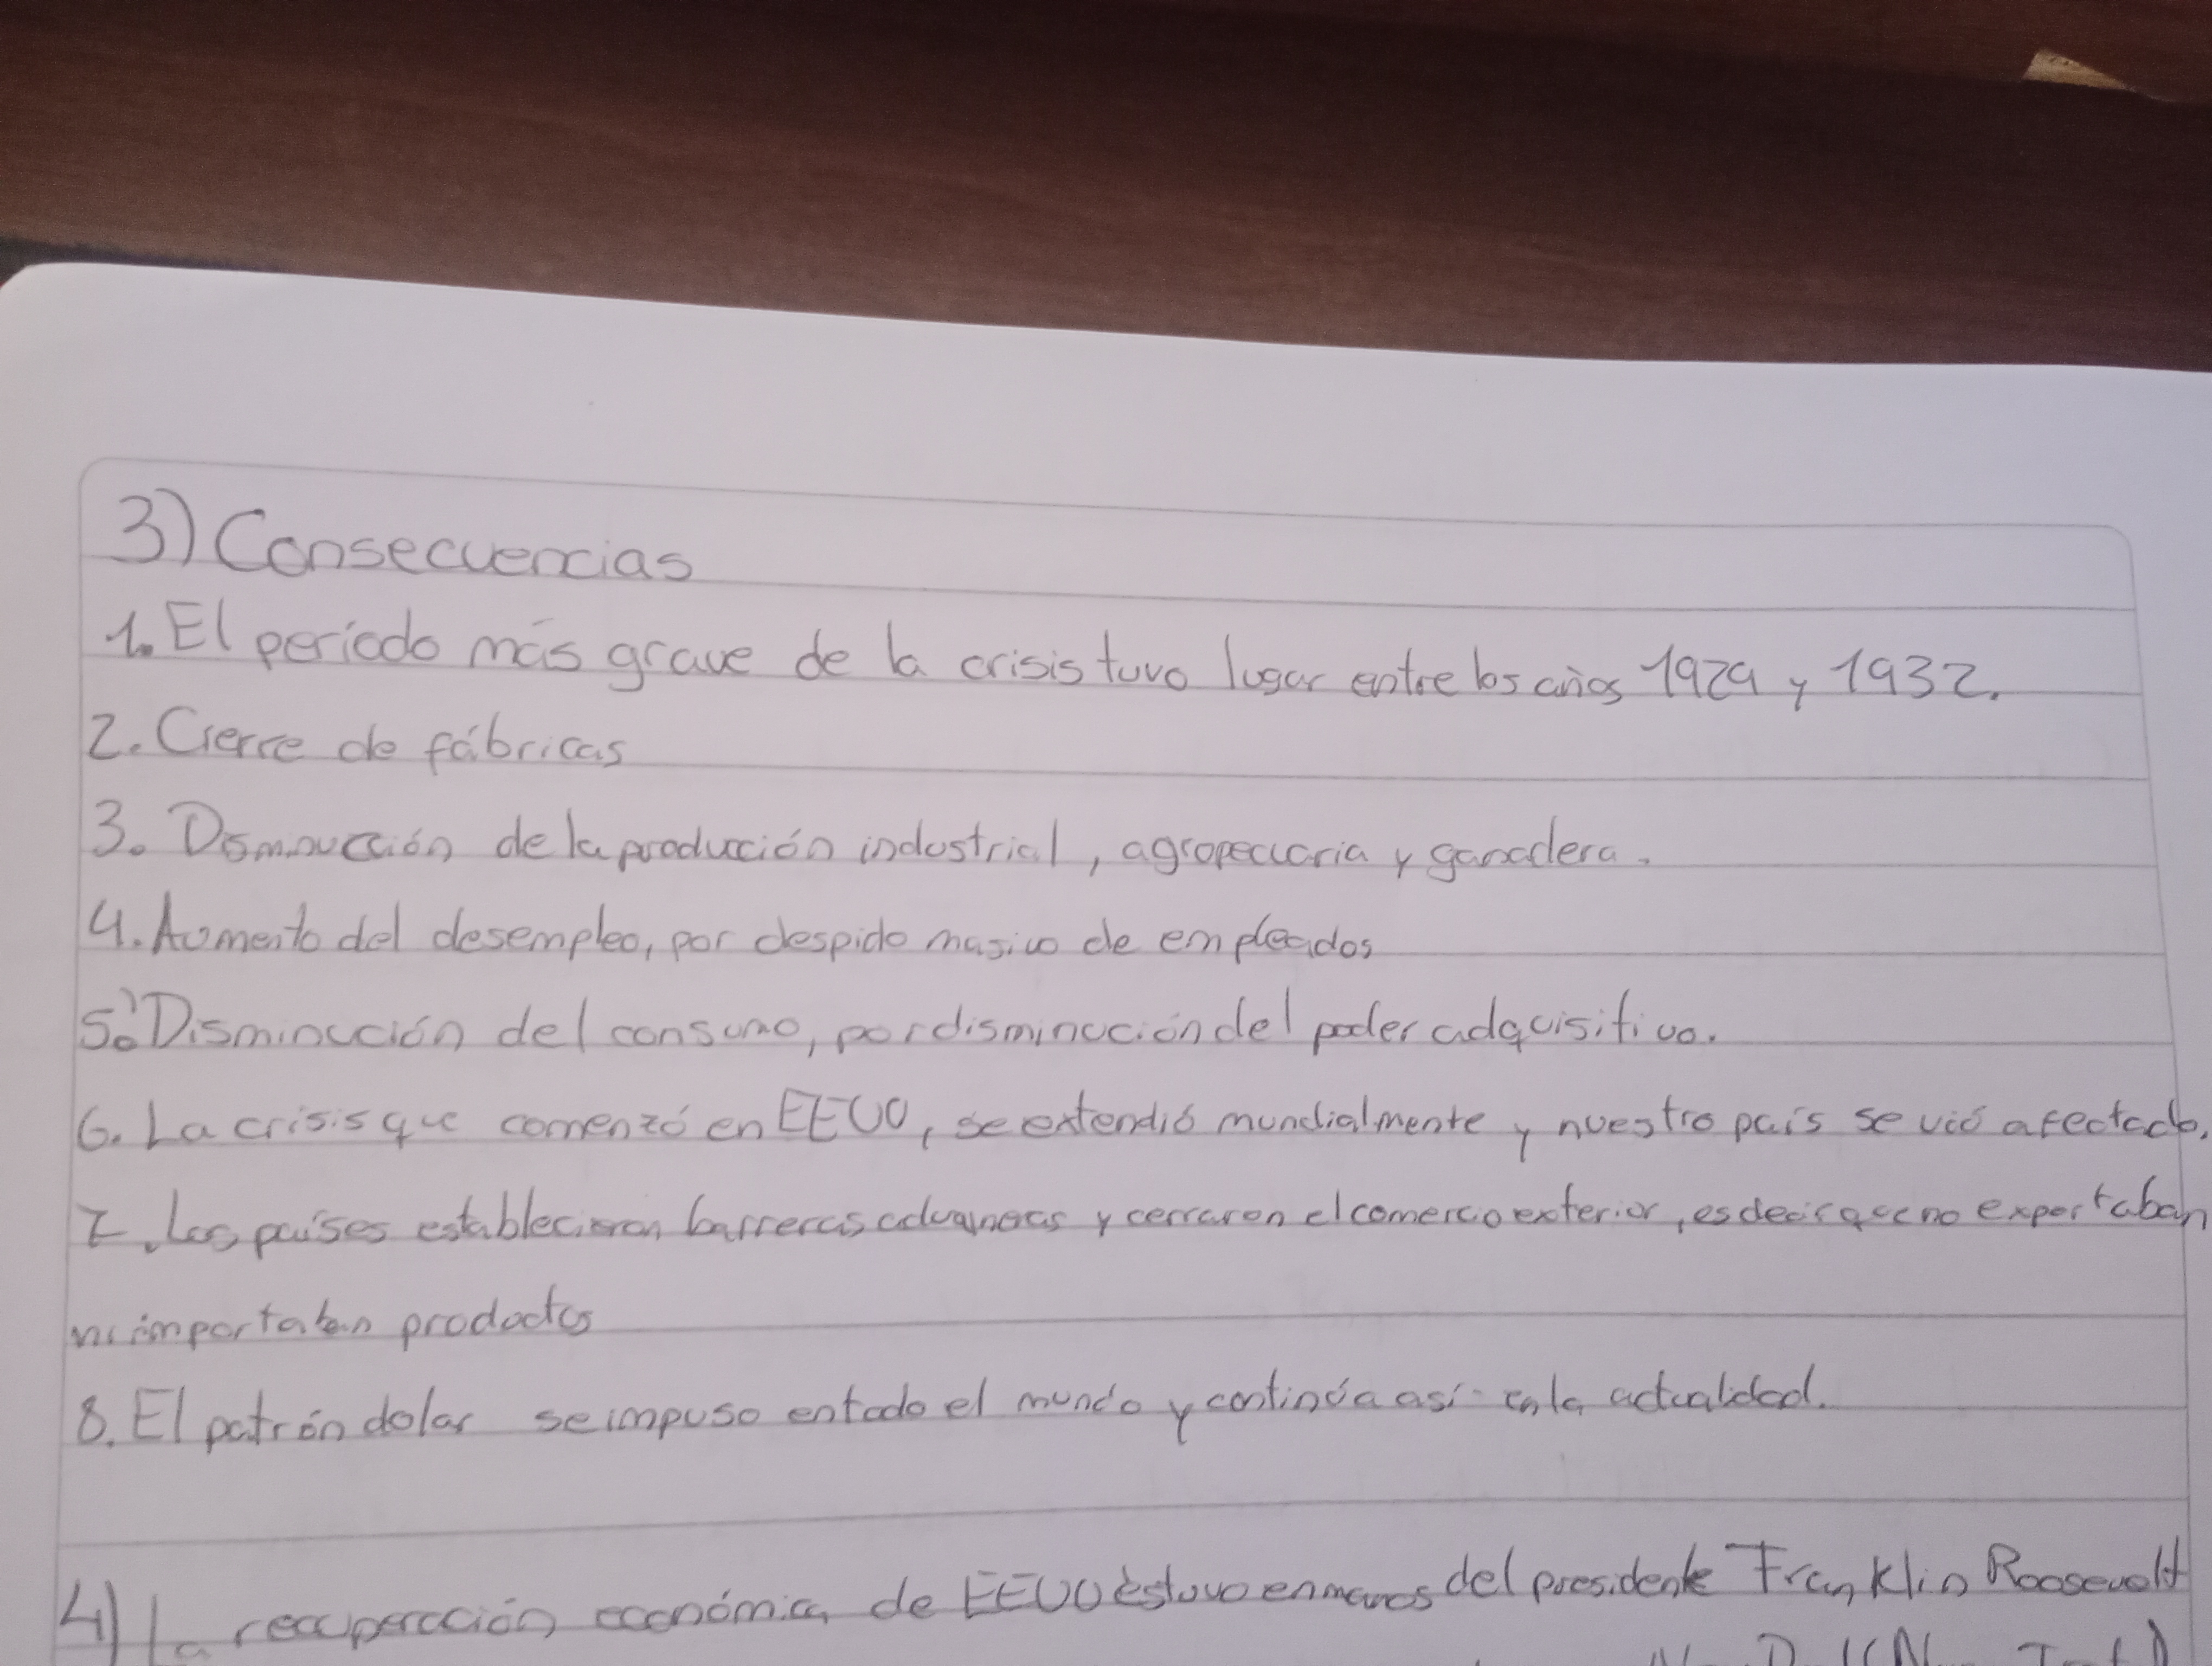 3) Consecuencias
1. El periodo más grave de la crisis tuvo lugar entre los años 1929 y 1932.
2. Cierre de fábricas
3. Disminución de la producción industrial, agropecuaria y ganadera.
4. Aumento del desempleo, por despido masivo de empleados
5. Disminución del consumo, por disminución del poder adquisitivo.
6. La crisis que comenzó en EEUU, se extendió mundialmente y nuestro país se vió afectado.
7. Los países establecieron barreras aduaneras y cerraron el comercio exterior, es decir que no exportaban
ni importaban productos
8. El patrón dolar se impuso en todo el mundo y continúa así en la actualidad.
4) La recuperación económica de EEUU estuvo en manos del presidente Franklin Roosevelt